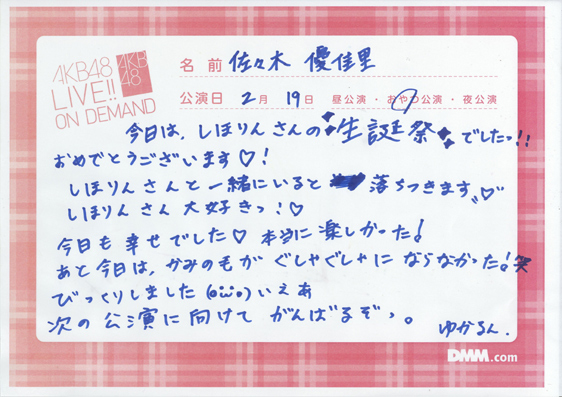 AKB48
LIVE!!
ON DEMAND
AKB
48
名前 佐々木 優佳里
公演日 2月 19日 昼公演・おやつ公演・夜公演
今日は、しほりんさんの 生誕祭 でしたっ!!
おめでとうございます♡!
しほりんさんと一緒にいると 落ちつきます♡
しほりんさん大好きっ!♡
今日も幸せでした♡ 本当に楽しかった!
あと今日は、かみのもが ぐしゃぐしゃに ならなかった!笑
びっくりしました(o¨o)いえあ
次の公演に向けて がんばるぞっ。 ゆかるん.
DMM.com